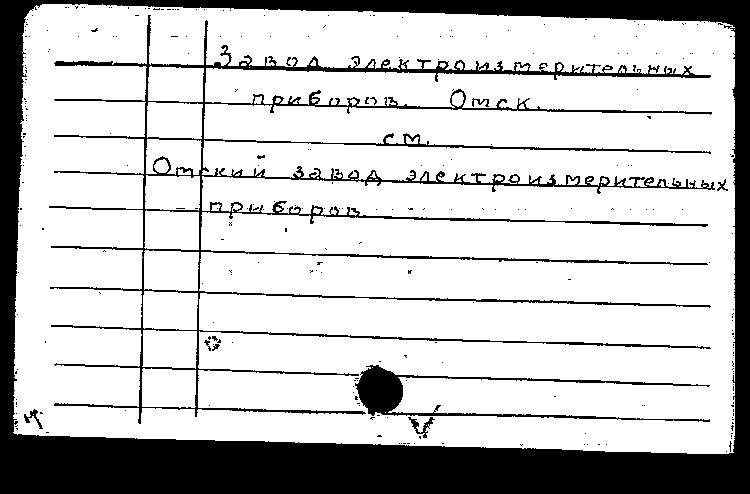 Завод электроизмерительных
приборов. Омск.
см.
Омский завод электроизмерительных
приборов.